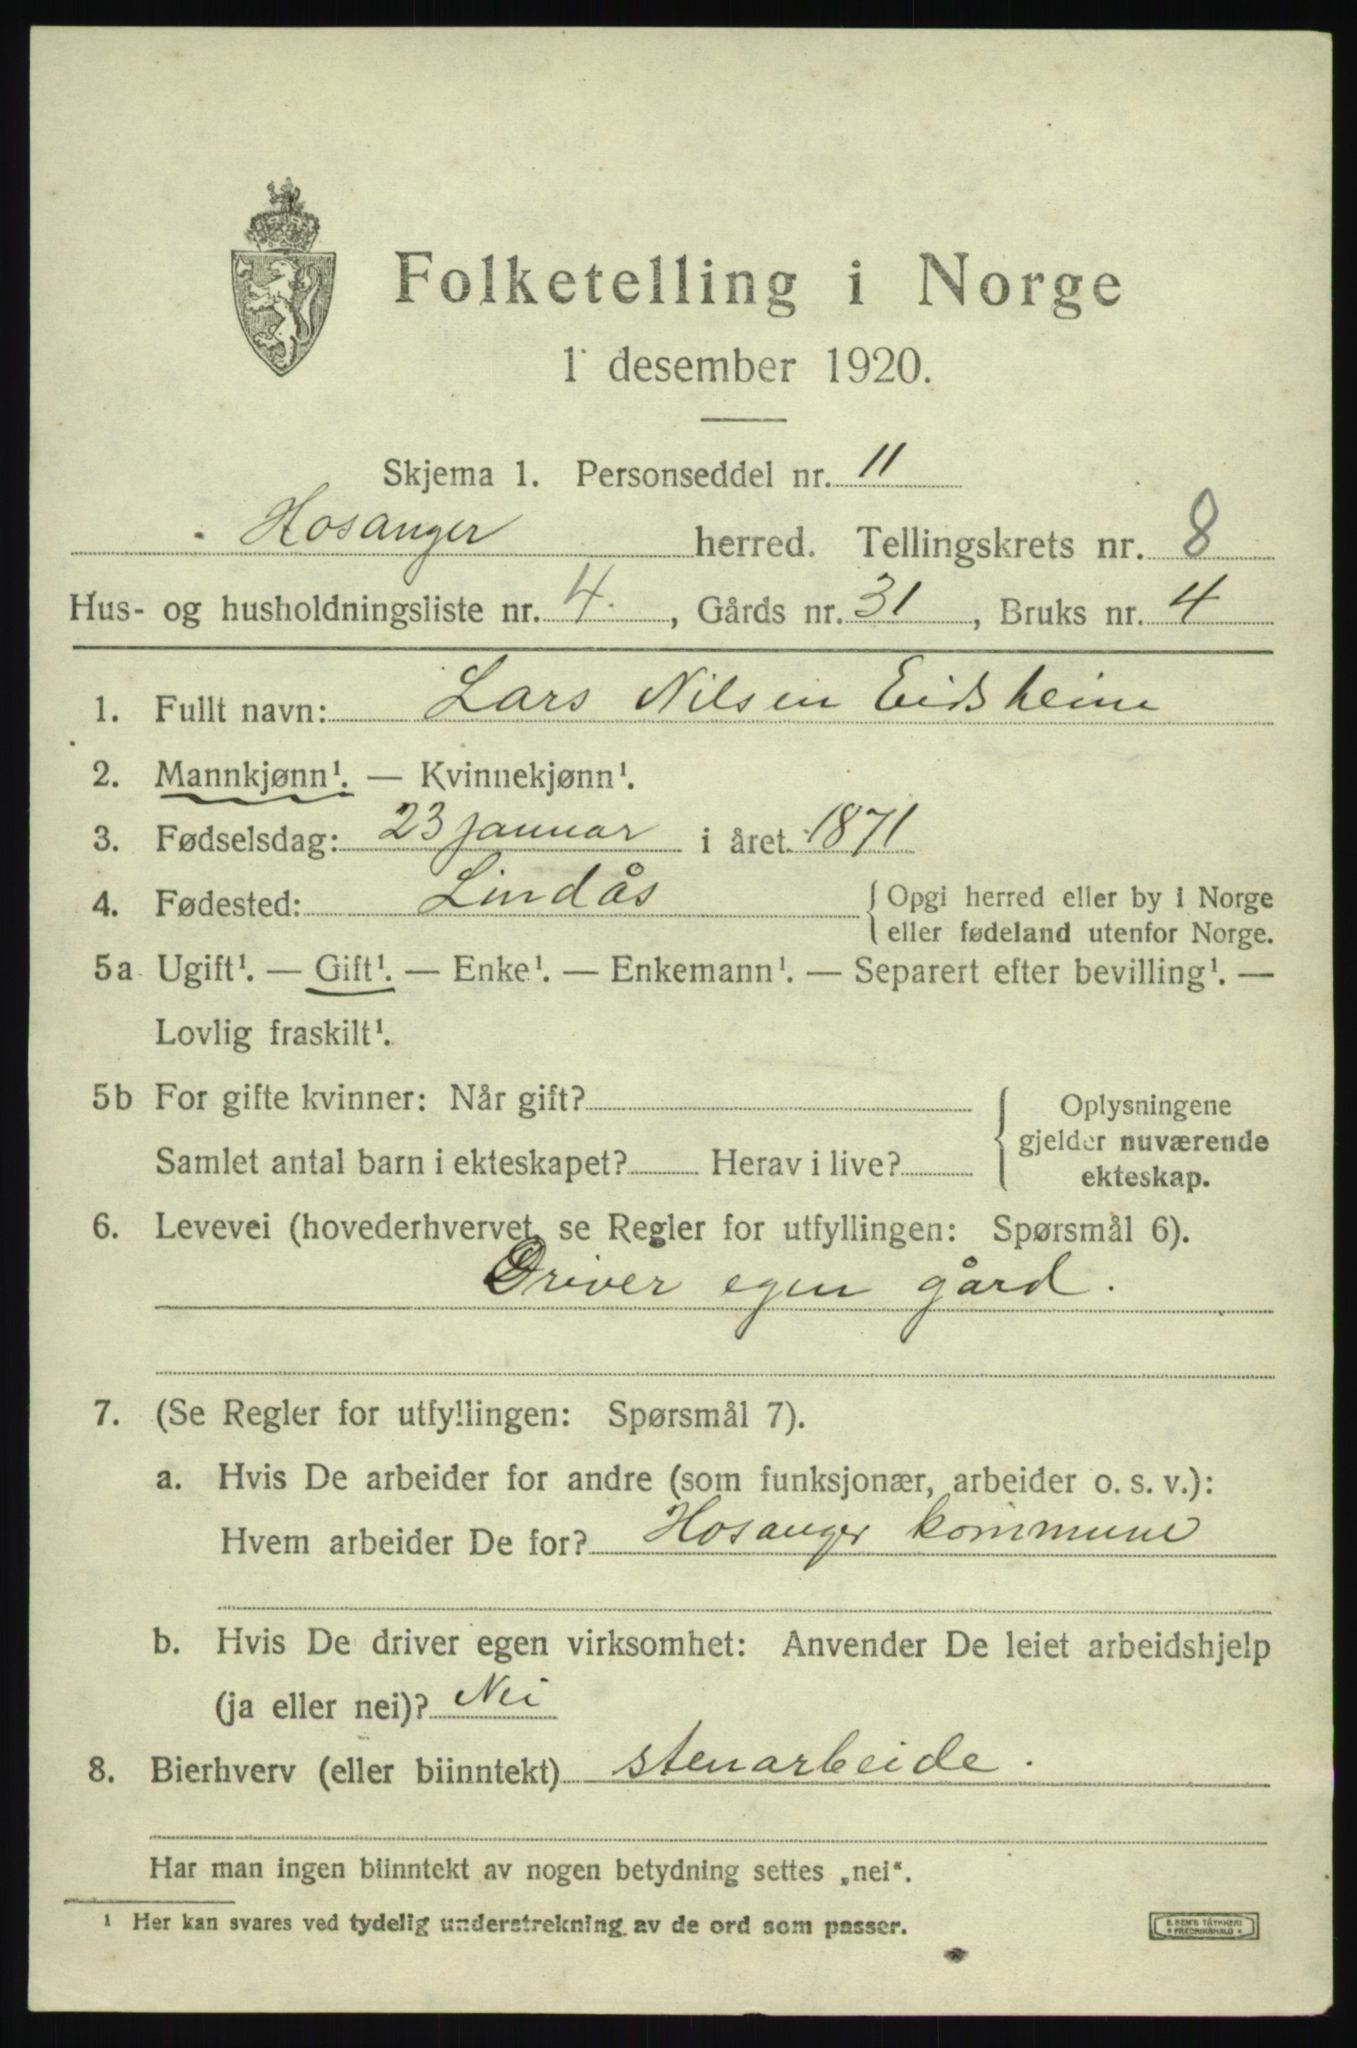 Folketelling i Norge
1 desember 1920.
Skjema 1. Personseddel nr. 11
Hosanger herred. Tellingskrets nr. 8
Hus- og husholdningsliste nr. 4., Gårds nr. 31, Bruks nr. 4
1. Fullt navn: Lars Nilsen Eidsheim
2. Mannkjønn¹. — Kvinnekjønn¹.
3. Fødselsdag: 23 januar i året 1871
4. Fødested: Lindås { Opgi herred eller by i Norge
eller fødeland utenfor Norge.
5a Ugift¹. — Gift¹. — Enke¹. — Enkemann¹. — Separert efter bevilling¹. —
Lovlig fraskilt¹.
5b For gifte kvinner: Når gift?
Samlet antal barn i ekteskapet? Herav i live?
Oplysningene
gjelder nuværende
ekteskap.
6. Levevei (hovederhvervet, se Regler for utfyllingen: Spørsmål 6).
Driver egen gård.
7. (Se Regler for utfyllingen: Spørsmål 7).
a. Hvis De arbeider for andre (som funksjonær, arbeider o. s. v.):
Hvem arbeider De for? Hosanger kommune
b. Hvis De driver egen virksomhet: Anvender De leiet arbeidshjelp
(ja eller nei)? Nei
8. Bierhverv (eller biinntekt) stenarbeide.
Har man ingen biinntekt av nogen betydning settes „nei“.
¹ Her kan svares ved tydelig understrekning av de ord som passer.